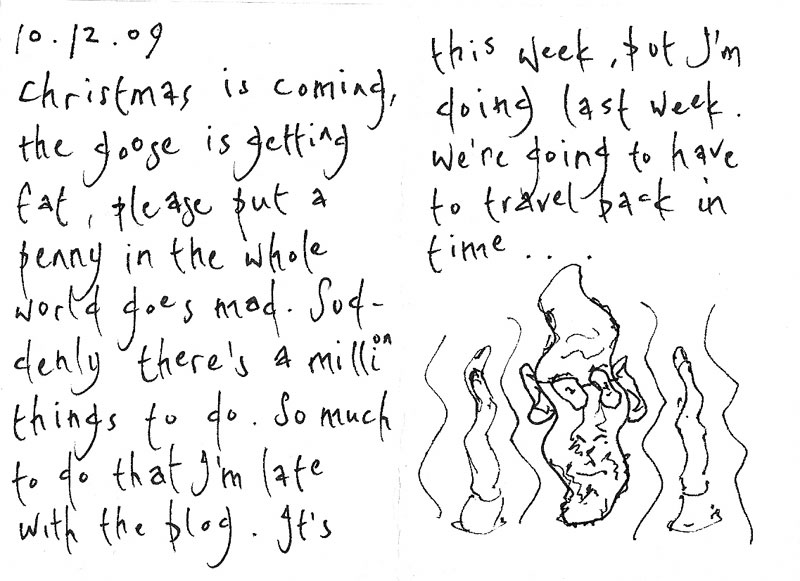 10.12.09
Christmas is coming,
the goose is getting
fat, please put a
penny in the whole
world goes mad. Sud-
denly there's a million
things to do. So much
to do that I'm late
with the blog. It's
this week, but I'm
doing last week.
We're going to have
to travel back in
time....